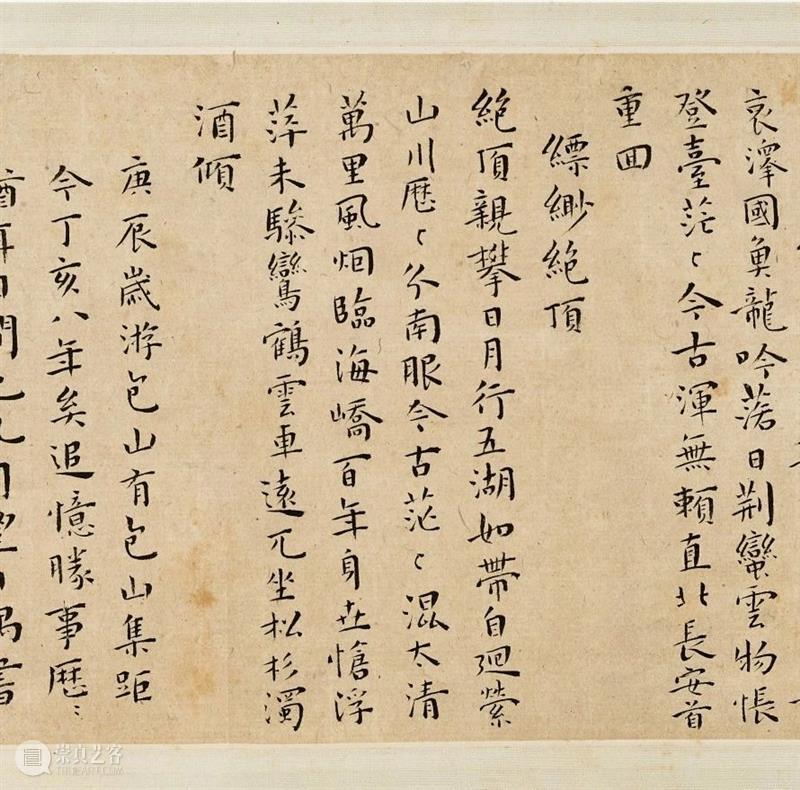 哀澤國魚龍吟落日荆蠻雲物悵
登臺茫〻今古渾無賴直北長安首
重囬
縹緲絶頂
絶頂親攀日月行五湖如帶自廻縈
山川歷〻分南眼今古茫〻混太清
萬里風烟臨海嶠百年身世愴浮
萍未驂鸞鶴雲車遠兀坐松杉濁
酒傾
庚辰歲游包山有包山集距
今丁亥八年矣追憶勝事歷〻
書
崇真艺客